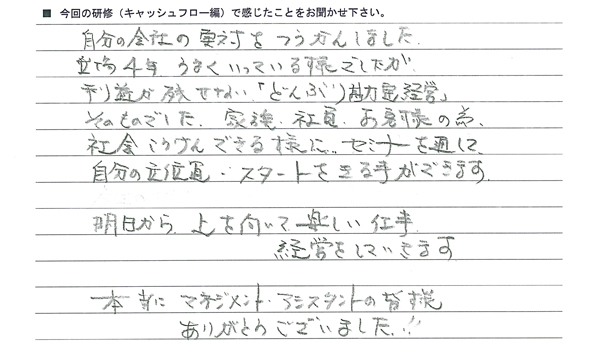 ■ 今回の研修（キャッシュフロー編）で感じたことをお聞かせ下さい。
自分の会社の実対をつうかんしました。
立場4年 うまくいっている様でしたが
利益が残せない「どんぶり勘定経営」
そのものでした。家族・社員・お客様の為、
社会こうけんできる様に、セミナーを通して、
自分の立位置・スタートをきる事ができます。
明日から、上を向いて 楽しい仕事
経営をしていきます
本当に マネジメント・アシスタントの皆様
ありがとうございました!!